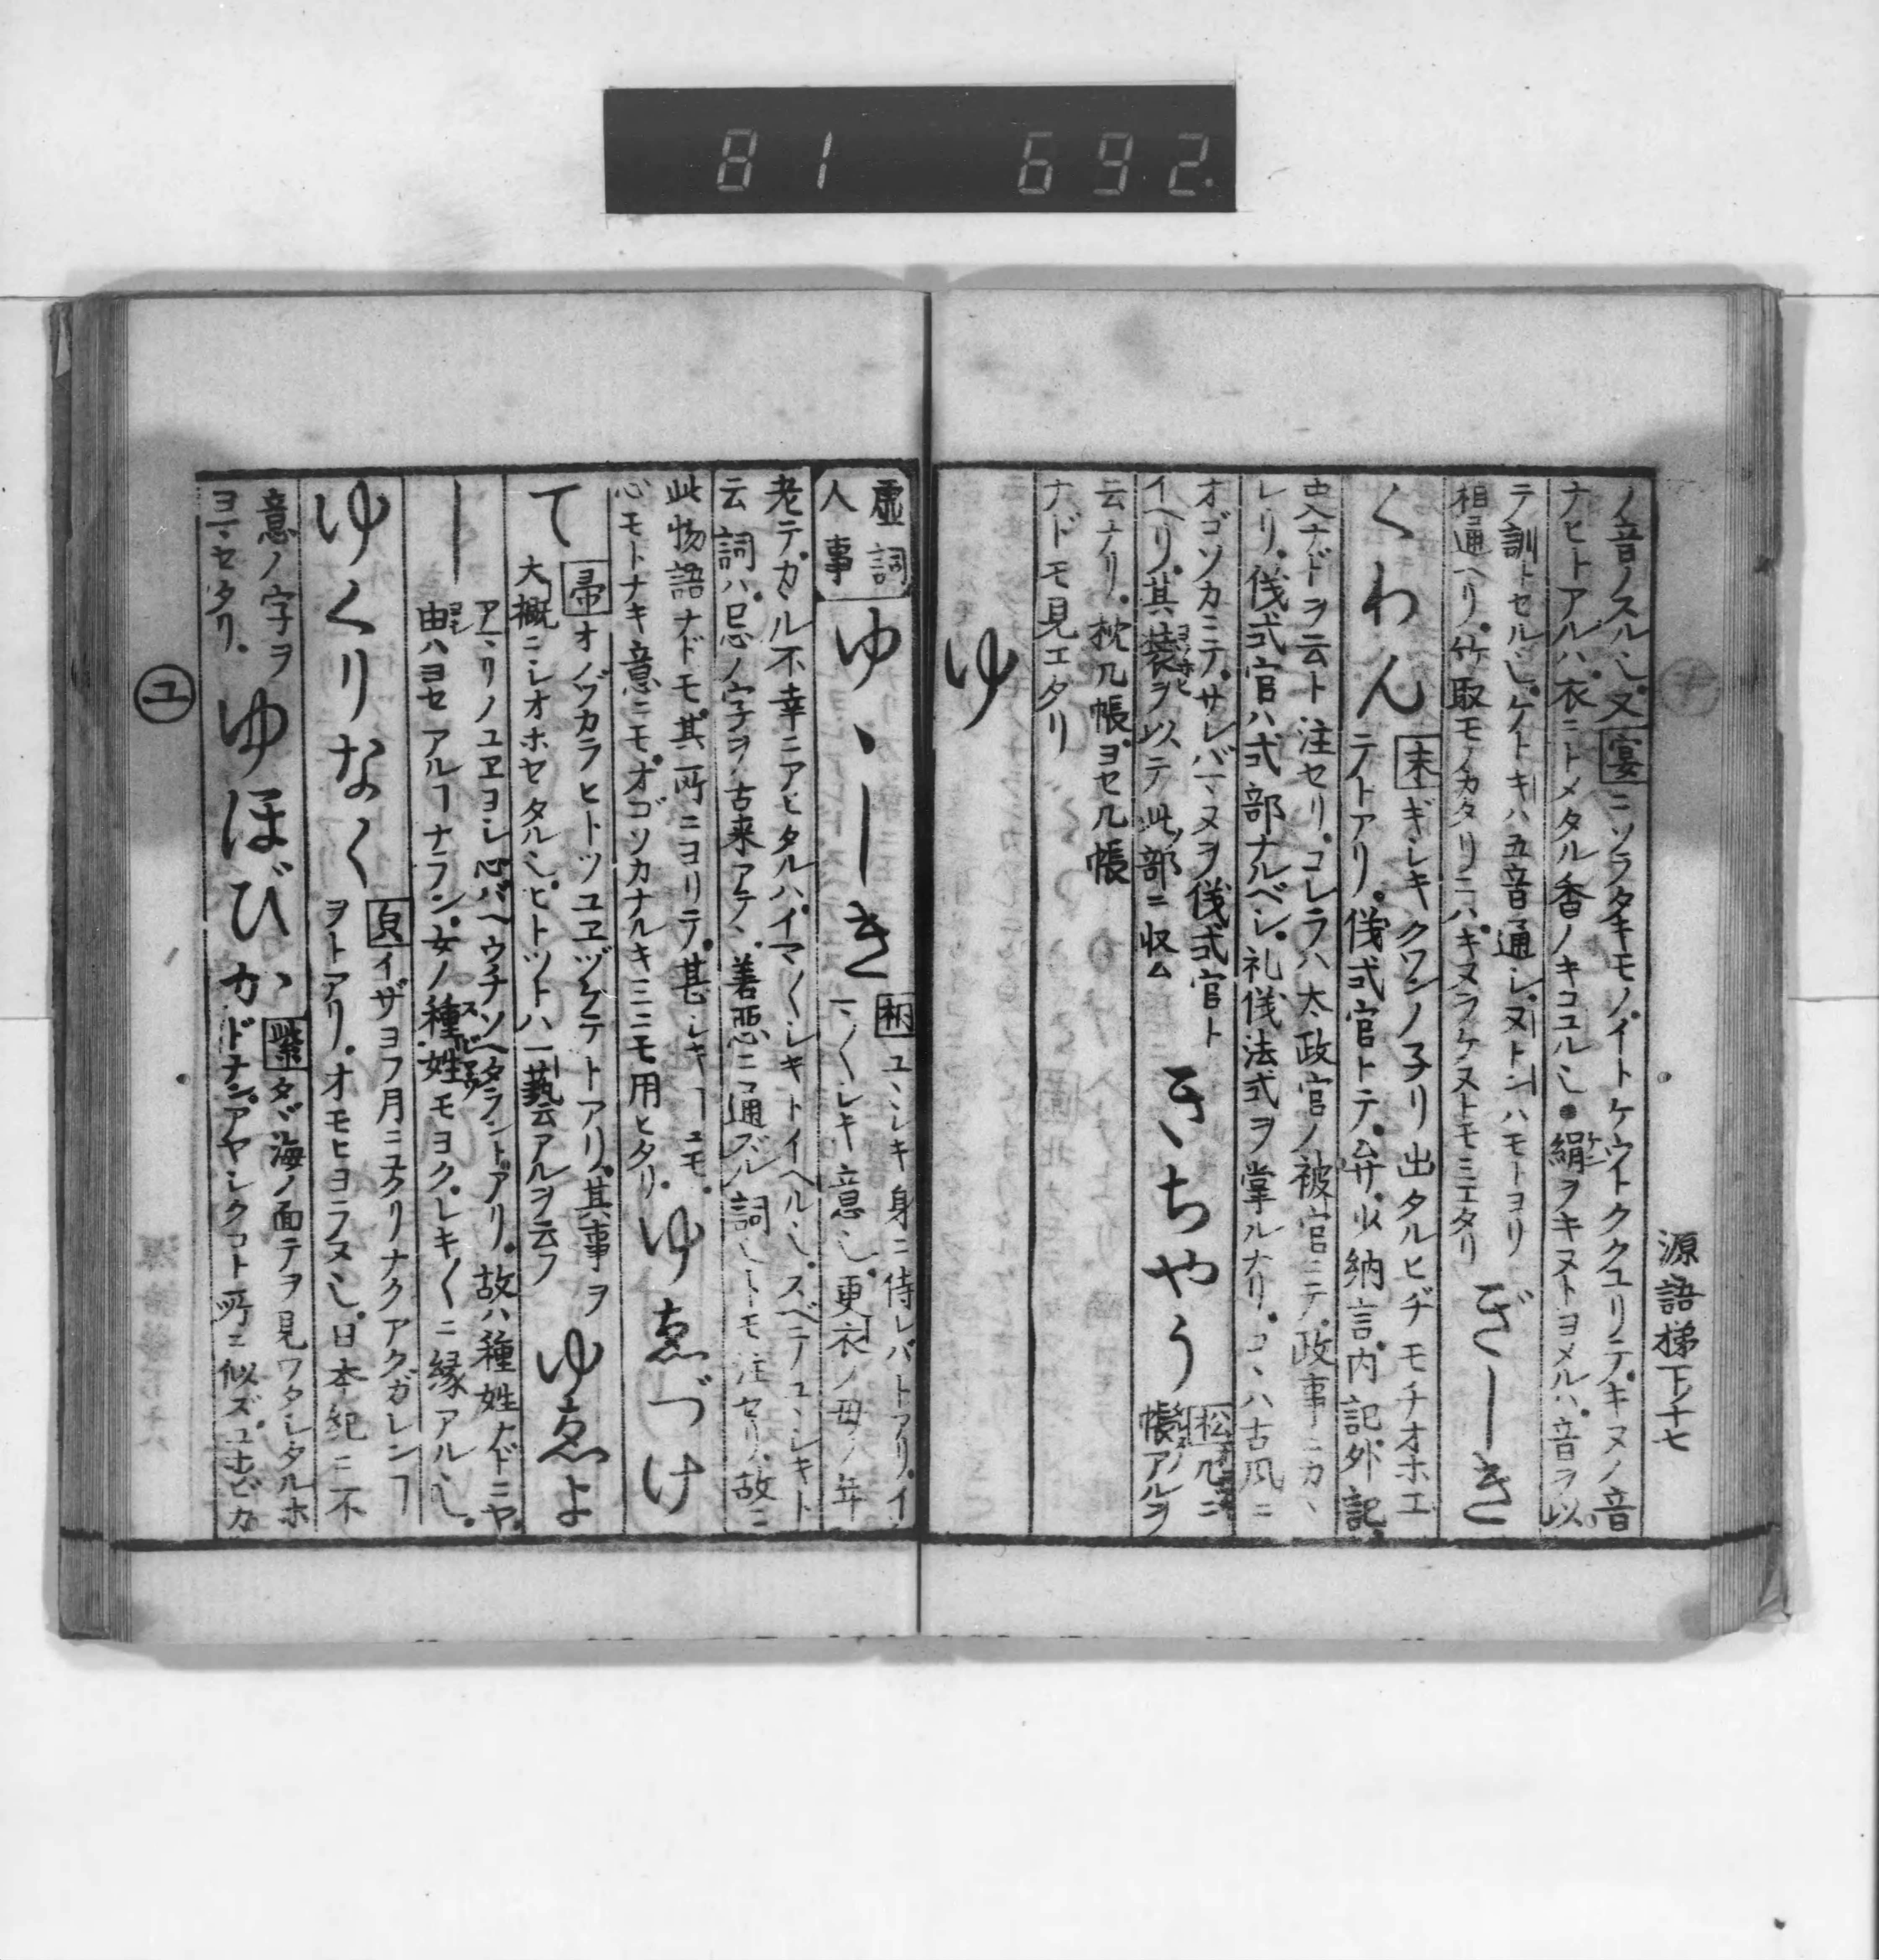 81 692
源語梯下ノ十七
ノ音ノスル也。又宴ニソラタキモノ。イトケウトククユリテ。キヌノ音
ナヒトアルハ。衣ニトメタル香ノキコユル也。絹ヲキヌトヨメルハ。音ヲ以
テ訓トセル也。ケイトキハ五音通シ。ヌトンハモトヨリ
相通ヘリ。竹取モノカタリニハ。キヌヲケストモミエタリ
ぎしき
くわん
末ギシキクワンノ子リ出タルヒヂモチオホエ
テトアリ。儀式官トテ。弁。少納言。内記。外記。
史ナドヲ云ト注セリ。コレラハ太政官ノ被官ニテ。政事ニカヽ
レリ。儀式官ハ式部ナルベシ。礼儀法式ヲ掌ルナリ。コヽハ古風ニ
オゴソカニテ。サレバマヽヌヲ儀式官ト
イヘリ。其装ヲ以テ此部ニ収ム
きちやう
松几ニ
帳アルヲ
云ナリ。枕几帳。ヨセ几帳
ナドモ見エタリ
ゆ
虚詞
人事
ゆゝしき
桐ユヽシキ身ニ侍レバトアリ。イ
マ〱シキ意也。更衣ノ母ノ年
老テ。カヽル不幸ニアヒタルハ。イマ〱シキトイヘル也。スベテユヽシキト
云詞ハ。忌ノ字ヲ。古来アテヽ。善悪ニ通ズル詞也トモ注セリ。故ニ
此物語ナドモ。其所ニヨリテ。甚シキヿニモ。
心モトナキ意ニモ。オゴソカナルキミニモ用ヒタリ。
ゆゑづけ
て
帚オノヅカラヒトツユヱヅケテトアリ。其事ヲ
大概ニシオホセタル也。ヒトツトハ一藝アルヲ云フ
ゆゑよ
し
アマリノユヱヨシ心バヘウチソヘタラントアリ。故ハ種姓ナドニヤ。
由ハヨセアルヿナラン。女ノ種姓モヨク。シキ〱ニ縁アル也。
ゆくりなく
夕イザヨフ月ニユクリナクアクガレンヿ
ヲトアリ。オモヒヨラヌ也。日本紀ニ不
意ノ字ヲ
ヨマセタリ。
ゆほびか
紫タヾ海ノ面テヲ見ワタシタルホ
カドナン。アヤシクコト所ニ似ズ。ユホビカ
ユ